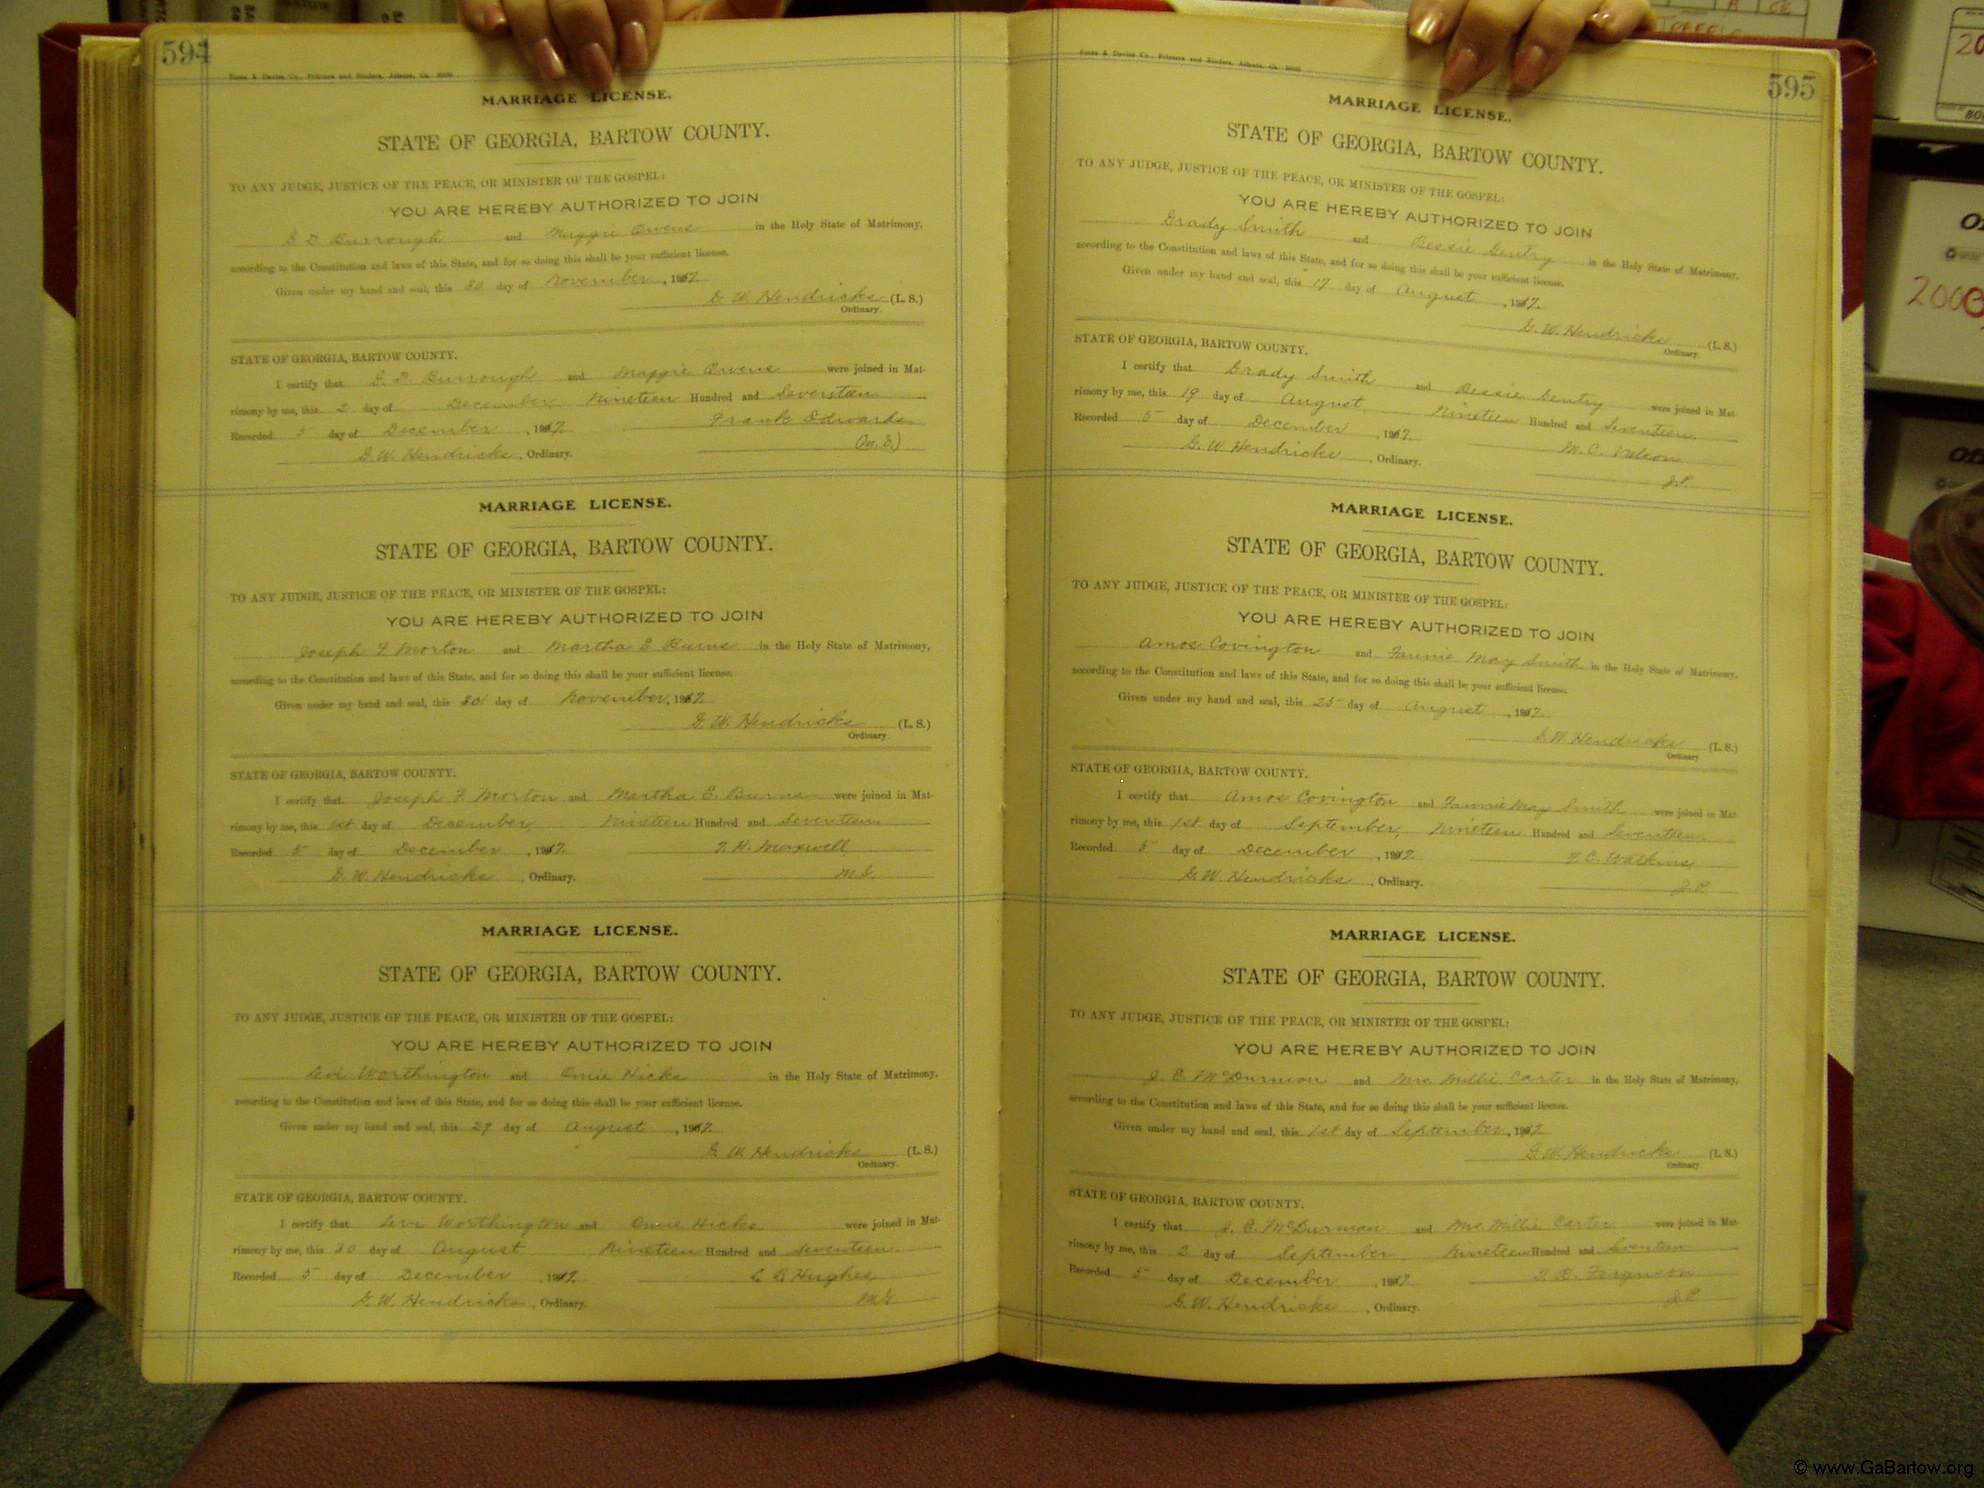 594
MARRIAGE LICENSE.
STATE OF GEORGIA, BARTOW COUNTY.
TO ANY JUDGE, JUSTICE OF THE PEACE, OR MINISTER OF THE GOSPEL:
YOU ARE HEREBY AUTHORIZED TO JOIN
Burrough and Maggie Owens in the Holy State of Matrimony,
according to the Constitution and laws of this State, and for so doing this shall be your sufficient license.
Given under my hand and seal, this 30 day of November, 1917.
G. W. Hendricks (L. S.)
Ordinary.
STATE OF GEORGIA, BARTOW COUNTY.
I certify that Burrough and Maggie Owens were joined in Mat-
rimony by me, this 2 day of December, Nineteen Hundred and Seventeen
Recorded 5 day of December, 1917. Frank Edwards
G. W. Hendricks, Ordinary.
MARRIAGE LICENSE.
STATE OF GEORGIA, BARTOW COUNTY.
TO ANY JUDGE, JUSTICE OF THE PEACE, OR MINISTER OF THE GOSPEL:
YOU ARE HEREBY AUTHORIZED TO JOIN
Joseph F Morton and Martha E Burns in the Holy State of Matrimony,
according to the Constitution and laws of this State, and for so doing this shall be your sufficient license.
Given under my hand and seal, this 30 day of November, 1917.
G. W. Hendricks (L. S.)
Ordinary.
STATE OF GEORGIA, BARTOW COUNTY.
I certify that Joseph F Morton and Martha E. Burns were joined in Mat-
rimony by me, this 1st day of December, Nineteen Hundred and Seventeen
Recorded 5 day of December, 1917. T. H. Maxwell
G. W. Hendricks, Ordinary. M.G.
MARRIAGE LICENSE.
STATE OF GEORGIA, BARTOW COUNTY.
TO ANY JUDGE, JUSTICE OF THE PEACE, OR MINISTER OF THE GOSPEL:
YOU ARE HEREBY AUTHORIZED TO JOIN
Levi Worthington and Omie Hicks in the Holy State of Matrimony,
according to the Constitution and laws of this State, and for so doing this shall be your sufficient license.
Given under my hand and seal, this 29 day of August, 1917.
G. W. Hendricks (L. S.)
Ordinary.
STATE OF GEORGIA, BARTOW COUNTY.
I certify that Levi Worthington and Omie Hicks were joined in Mat-
rimony by me, this 30 day of August Nineteen Hundred and Seventeen
Recorded 5 day of December, 1917. Hughes
G. W. Hendricks, Ordinary. M.G.
595
MARRIAGE LICENSE.
STATE OF GEORGIA, BARTOW COUNTY.
TO ANY JUDGE, JUSTICE OF THE PEACE, OR MINISTER OF THE GOSPEL:
YOU ARE HEREBY AUTHORIZED TO JOIN
Grady Smith and Bessie Gentry in the Holy State of Matrimony,
according to the Constitution and laws of this State, and for so doing this shall be your sufficient license.
Given under my hand and seal, this 17 day of August, 1917.
G. W. Hendricks (L. S.)
Ordinary.
STATE OF GEORGIA, BARTOW COUNTY.
I certify that Grady Smith and Bessie Gentry were joined in Mat-
rimony by me, this 19 day of August Nineteen Hundred and Seventeen
Recorded 5 day of December, 1917. M. C.
G. W. Hendricks, Ordinary. J.P.
MARRIAGE LICENSE.
STATE OF GEORGIA, BARTOW COUNTY.
TO ANY JUDGE, JUSTICE OF THE PEACE, OR MINISTER OF THE GOSPEL:
YOU ARE HEREBY AUTHORIZED TO JOIN
Amos Covington and Fannie May Smith in the Holy State of Matrimony,
according to the Constitution and laws of this State, and for so doing this shall be your sufficient license.
Given under my hand and seal, this 25 day of August, 1917.
G. W. Hendricks (L. S.)
Ordinary.
STATE OF GEORGIA, BARTOW COUNTY.
I certify that Amos Covington and Fannie May Smith were joined in Mat-
rimony by me, this 1st day of September, Nineteen Hundred and Seventeen
Recorded 5 day of December, 1917. C. Watkins
G. W. Hendricks, Ordinary. J.P.
MARRIAGE LICENSE.
STATE OF GEORGIA, BARTOW COUNTY.
TO ANY JUDGE, JUSTICE OF THE PEACE, OR MINISTER OF THE GOSPEL:
YOU ARE HEREBY AUTHORIZED TO JOIN
J. E. McDurmon and Mrs Millie Carter in the Holy State of Matrimony,
according to the Constitution and laws of this State, and for so doing this shall be your sufficient license.
Given under my hand and seal, this 1st day of September, 1917
G. W. Hendricks (L. S.)
Ordinary.
STATE OF GEORGIA, BARTOW COUNTY.
I certify that J. E. McDurmon and Mrs Millie Carter were joined in Mat-
rimony by me, this 2 day of September, Nineteen Hundred and Seventeen
Recorded 5 day of December, 1917 Ferguson
G. W. Hendricks, Ordinary. J.P.
© www.GaBartow.org